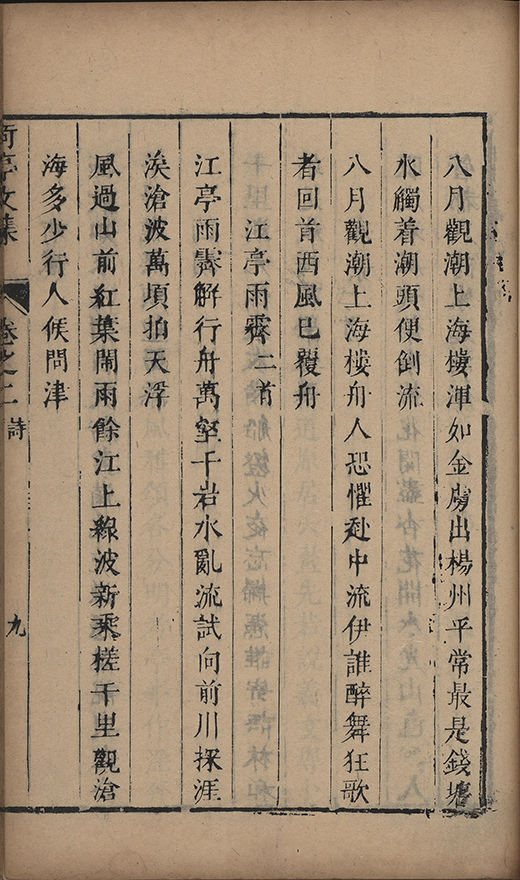 八月觀潮上海樓渾如金虜出楊州平常最是錢塘
水觸着潮頭便倒流
八月觀潮上海樓舟人恐懼赴中流伊誰醉舞狂歌
者回首西風已覆舟
江亭雨霽二首
江亭雨霽解行舟萬壑千岩水亂流試向前川探涯
涘滄波萬頃拍天浮
風過山前紅葉鬧雨餘江上綠波新乘槎千里觀滄
海多少行人候問津
亭文集 卷之二 詩 九